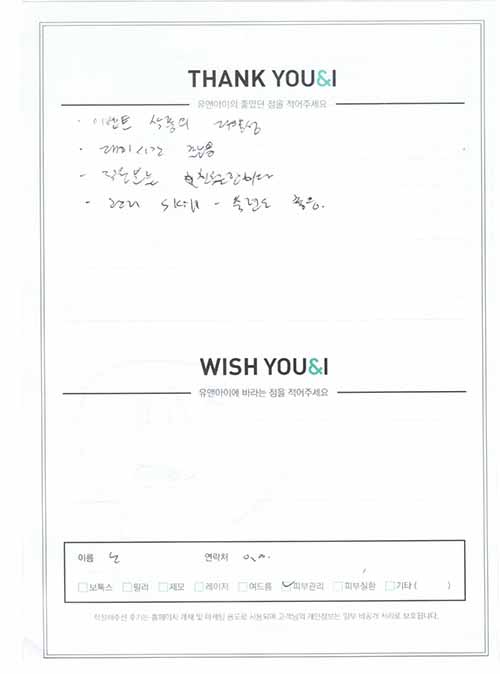 THANK YOU&I
유앤아이의 좋았던 점을 적어주세요
· 이벤트 상품의 다양성
- 대기시간 짧음
- 친절
- 관리 skill - 숙련도 좋음.
WISH YOU&I
유앤아이에 바라는 점을 적어주세요
이름 연락처
보톡스 필러 제모 레이저 여드름 피부관리 피부질환 기타 ( )
작성해주신 후기는 홈페이지 게재 및 마케팅 용도로 사용되며 고객님의 개인정보는 일부 비공개 처리로 보호됩니다.